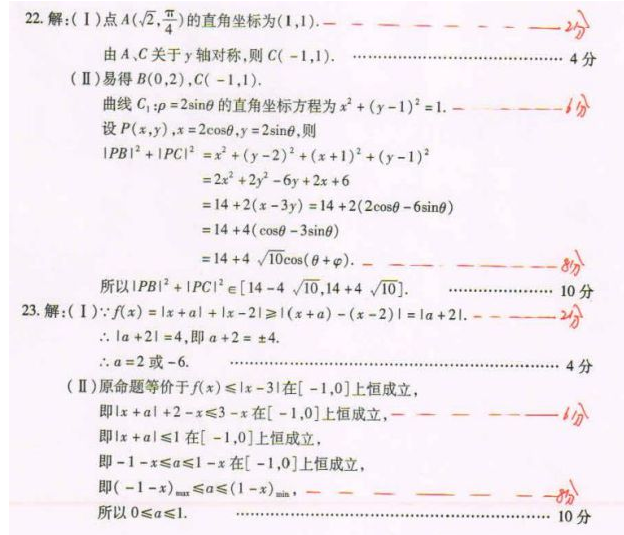 22. 解:(Ⅰ)点 A(√2, π/4) 的直角坐标为(1,1). 2分
由 A、C 关于 y 轴对称,则 C( -1,1). ………………………… 4 分
(Ⅱ)易得 B(0,2),C( -1,1).
曲线 C₁:ρ = 2sinθ 的直角坐标方程为 x² + (y - 1)² = 1. 6分
设 P(x,y), x = 2cosθ, y = 2sinθ, 则
|PB|² + |PC|² = x² + (y - 2)² + (x + 1)² + (y - 1)²
= 2x² + 2y² - 6y + 2x + 6
= 14 + 2(x - 3y) = 14 + 2(2cosθ - 6sinθ)
= 14 + 4(cosθ - 3sinθ)
= 14 + 4 √10cos(θ + φ). 8分
所以 |PB|² + |PC|² ∈ [14 - 4 √10, 14 + 4 √10]. ………… 10 分
23. 解:(Ⅰ)∵ f(x) = |x + a| + |x - 2| ≥ |(x + a) - (x - 2)| = |a + 2|. 2分
∴ |a + 2| = 4, 即 a + 2 = ±4.
∴ a = 2 或 -6. ………………………… 4 分
(Ⅱ)原命题等价于 f(x) ≤ |x - 3| 在[ -1,0]上恒成立,
即|x + a| + 2 - x ≤ 3 - x 在[ -1,0]上恒成立, 6分
即|x + a| ≤ 1 在[ -1,0]上恒成立,
即 -1 - x ≤ a ≤ 1 - x 在[ -1,0]上恒成立,
即( -1 - x)max ≤ a ≤ (1 - x)min, 8分
所以 0 ≤ a ≤ 1. ………………………… 10 分